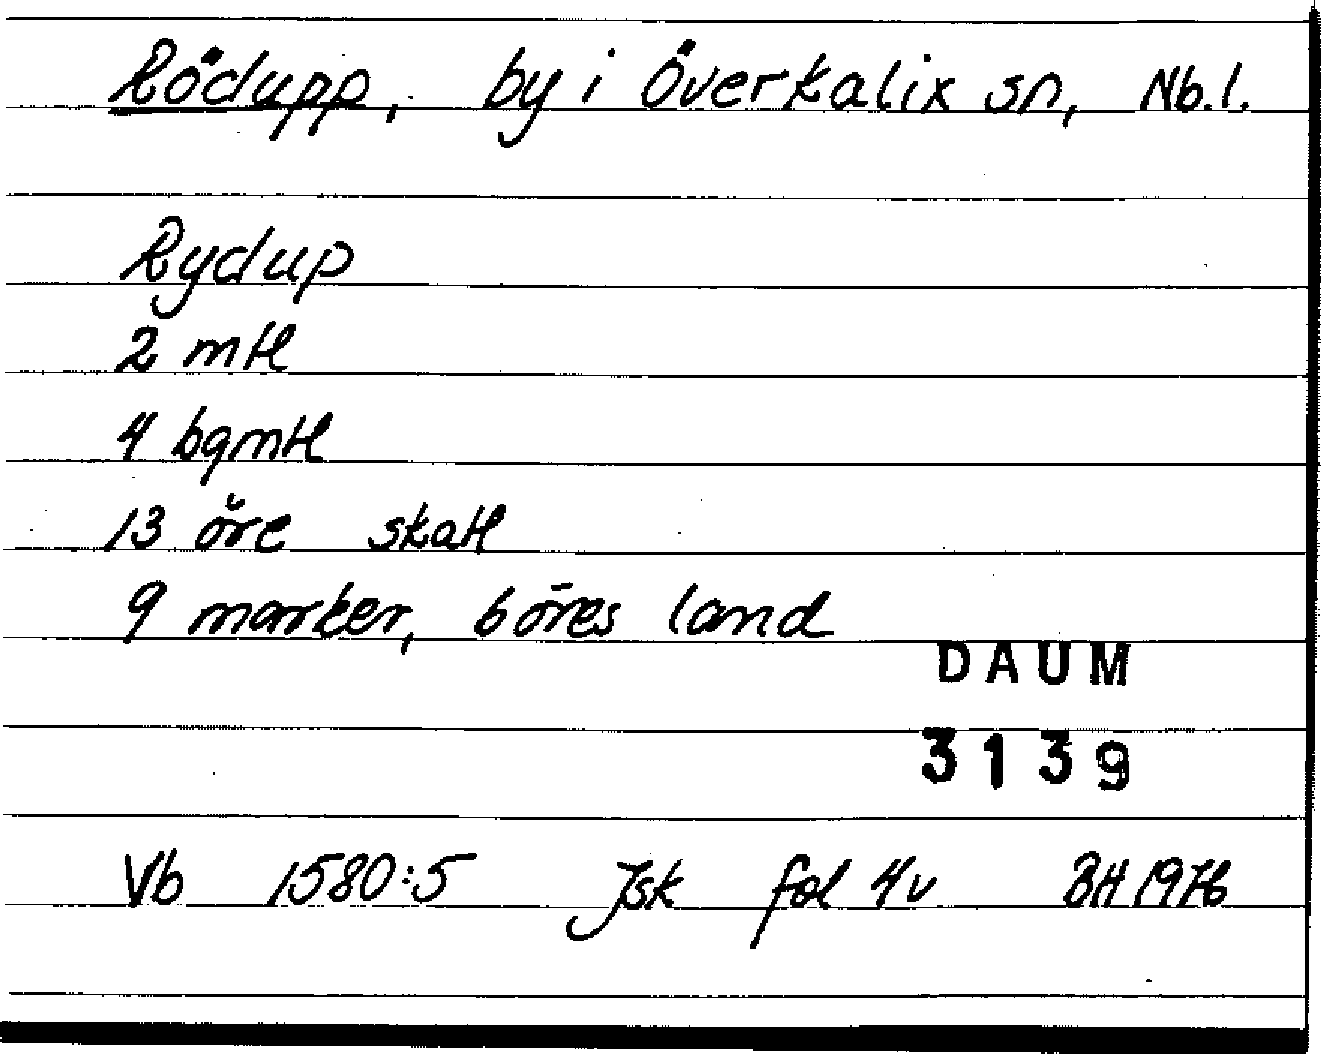 Rödupp, by i Överkalix sn, Nb.l.
Rydup
2 mtl
4 bgmtl
13 öre skatt
9 marker, 6 öres land
DAUM
3139
Vb 1580:5 Jsk fol 4v BH 1976